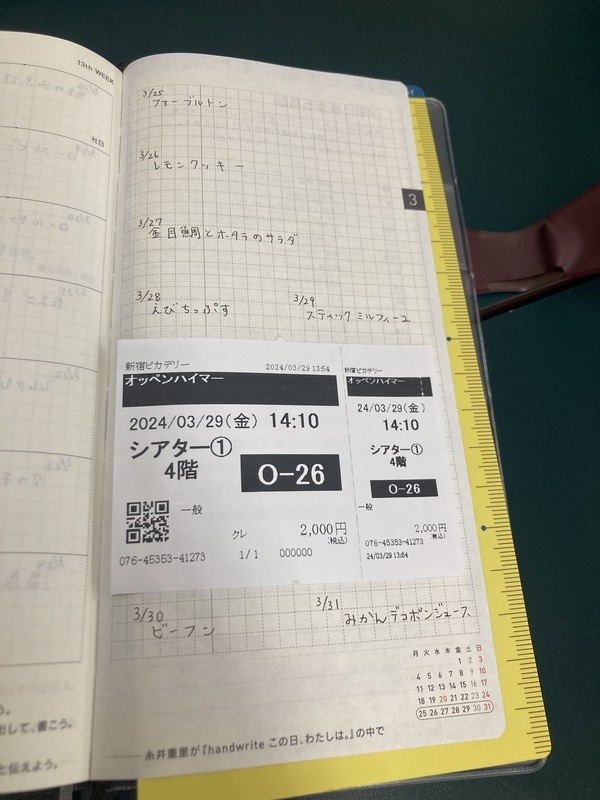 13th WEEK
社日
3/25
ファーブルトン
3/26
レモンクッキー
3/27
金目鯛とホタテのサラダ
3/28
えびちっぷす
3/29
スティックミルフィーユ
3
新宿ピカデリー
2024/03/29 13:54
オッペンハイマー
2024/03/29(金) 14:10
シアター①
4階
O-26
一般
クレ
2,000円
(税込)
076-45353-41273
1/1
000000
新宿ピカデリー
オッペンハイマー
24/03/29(金)
14:10
シアター①
4階
O-26
一般
2,000円
(税込)
076-45353-41273
24/03/29 13:54
3/30
ビーフン
3/31
みかんデコポンジュース
月 火 水 木 金 土 日
1 2 3
4 5 6 7 8 9 10
11 12 13 14 15 16 17
18 19 20 21 22 23 24
25 26 27 28 29 30 31
う。
出して、書こう。
と伝えよう。
糸井重里が『handwrite この日、わたしは。』の中で